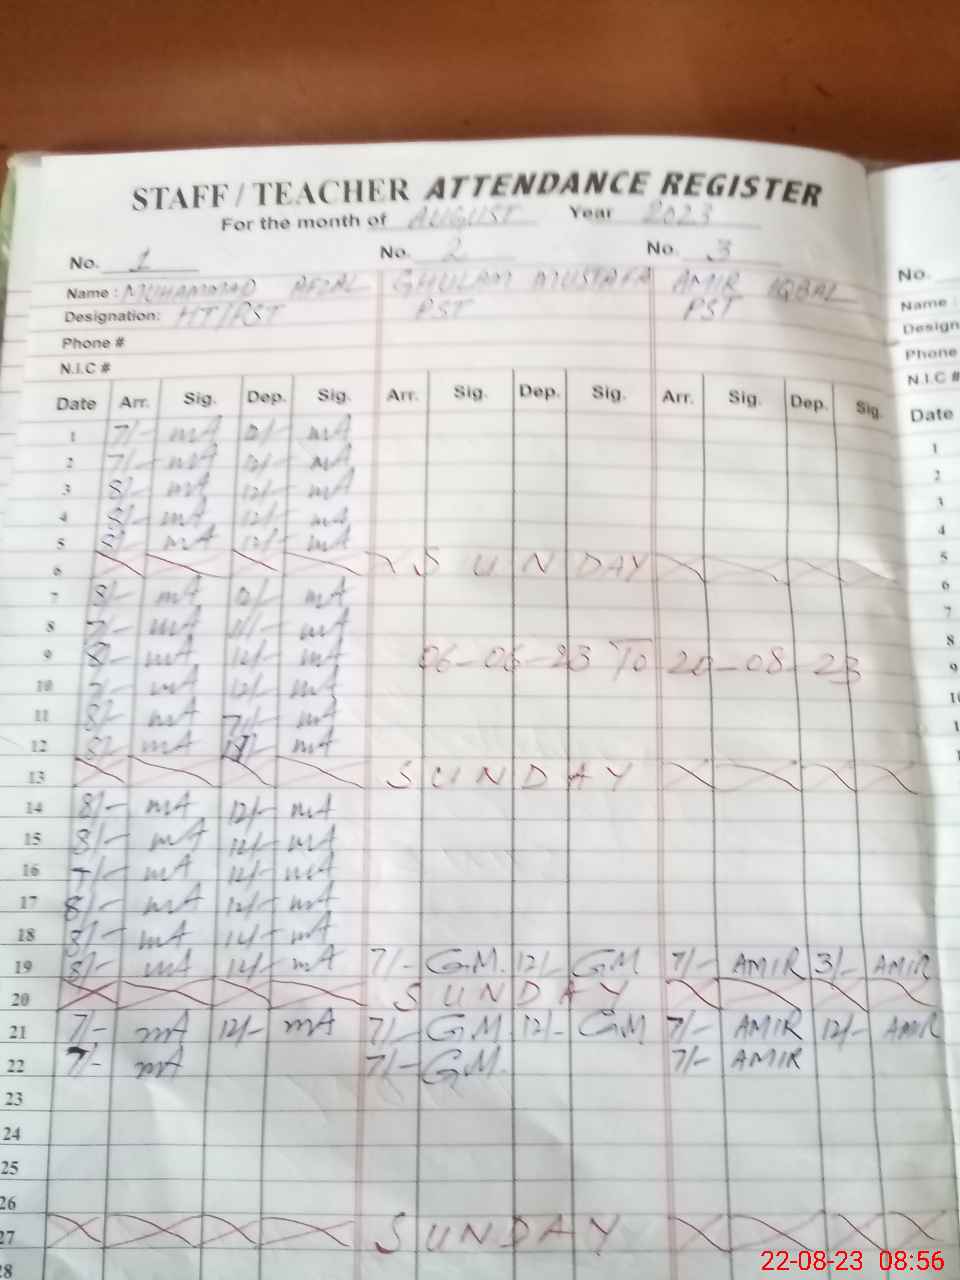 STAFF / TEACHER ATTENDANCE REGISTER
For the month of AUGUST Year 2023
No. 1 No. 2 No. 3 No.
Name : MUHAMMAD AFZAL GHULAM MUSTAFA AMIR IQBAL Name :
Designation: HT/PST PST PST Design
Phone # Phone
N.I.C # N.I.C #
Date Arr. Sig. Dep. Sig. Arr. Sig. Dep. Sig. Arr. Sig. Dep. Sig. Date
1 7/- mA 12/- mA 1
2 7/- mA 12/- mA 2
3 8/- mA 12/- mA 3
4 8/- mA 12/- mA 4
5 8/- mA 12/- mA 5
6 SUNDAY 6
7 8/- mA 12/- mA 7
8 7/- mA 11/- mA 8
9 8/- mA 12/- mA 06-06-23 TO 20-08-23 9
10 7/- mA 12/- mA
11 8/- mA 7/- mA
12 8/- mA mA
13 SUNDAY
14 8/- mA 12/- mA
15 8/- mA 12/- mA
16 7/- mA 12/- mA
17 8/- mA 12/- mA
18 8/- mA 14/- mA
19 8/- mA 14/- mA 7/- GM. 12/- GM 7/- AMIR 3/- AMIR
20 SUNDAY
21 7/- mA 12/- mA 7/- GM. 12/- GM 7/- AMIR 12/- AMIR
22 7/- mA 7/- GM. 7/- AMIR
23
24
25
26
27 SUNDAY
28
22-08-23 08:56